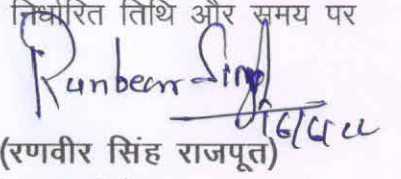 निर्धारित तिथि और समय पर
Ranbeer Singh
(रणवीर सिंह राजपूत)